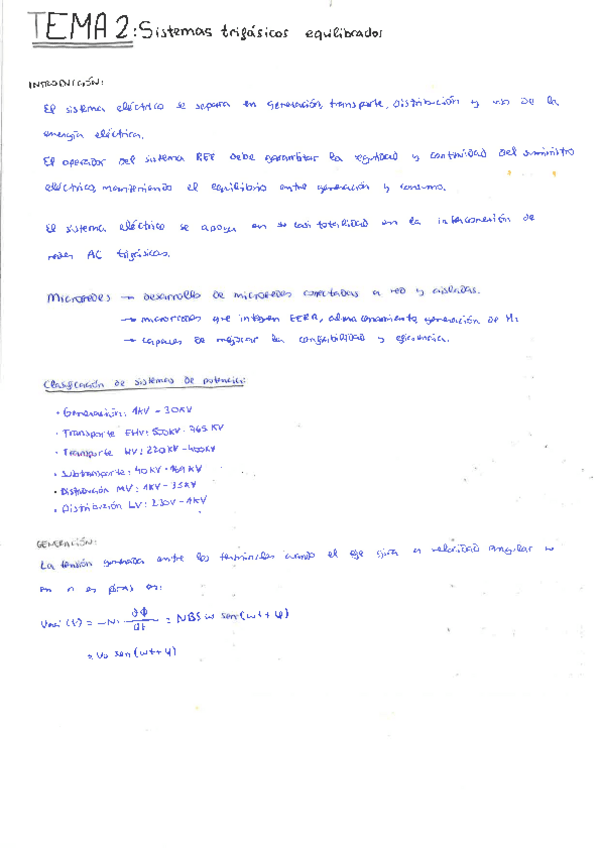 TEMA 2: Sistemas trifásicos equilibrados
INTRODUCCIÓN:
El sistema eléctrico se separa en generación, transporte, distribución y uso de la
energía eléctrica.
El operador del sistema REE debe garantizar la seguridad y continuidad del suministro
eléctrico, manteniendo el equilibrio entre generación y consumo.
El sistema eléctrico se apoya en su casi totalidad en la interconexión de
redes AC trifásicas.
Microredes → desarrollo de microredes conectadas a red y aisladas.
→ microredes que integren EERR, almacenamiento, generación de H2
→ capaces de mejorar la confiabilidad y eficiencia.
Clasificación de sistemas de potencia:
· Generación: 1KV - 30KV
· Transporte EHV: 500KV - 765 KV
· Transporte HV: 220KV - 400KV
· Subtransporte: 40KV - 169KV
· Distribución MV: 1KV - 35KV
· Distribución LV: 230V - 1KV
GENERACIÓN:
La tensión generada entre los terminales cuando el eje gira a velocidad angular w
en n espiras es:
(t) = -N · dΦ/dt = NBS w sen(wt + φ)
= Vo sen(wt + φ)